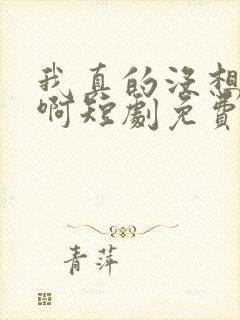 我真的没想
啊短剧免费
青萍